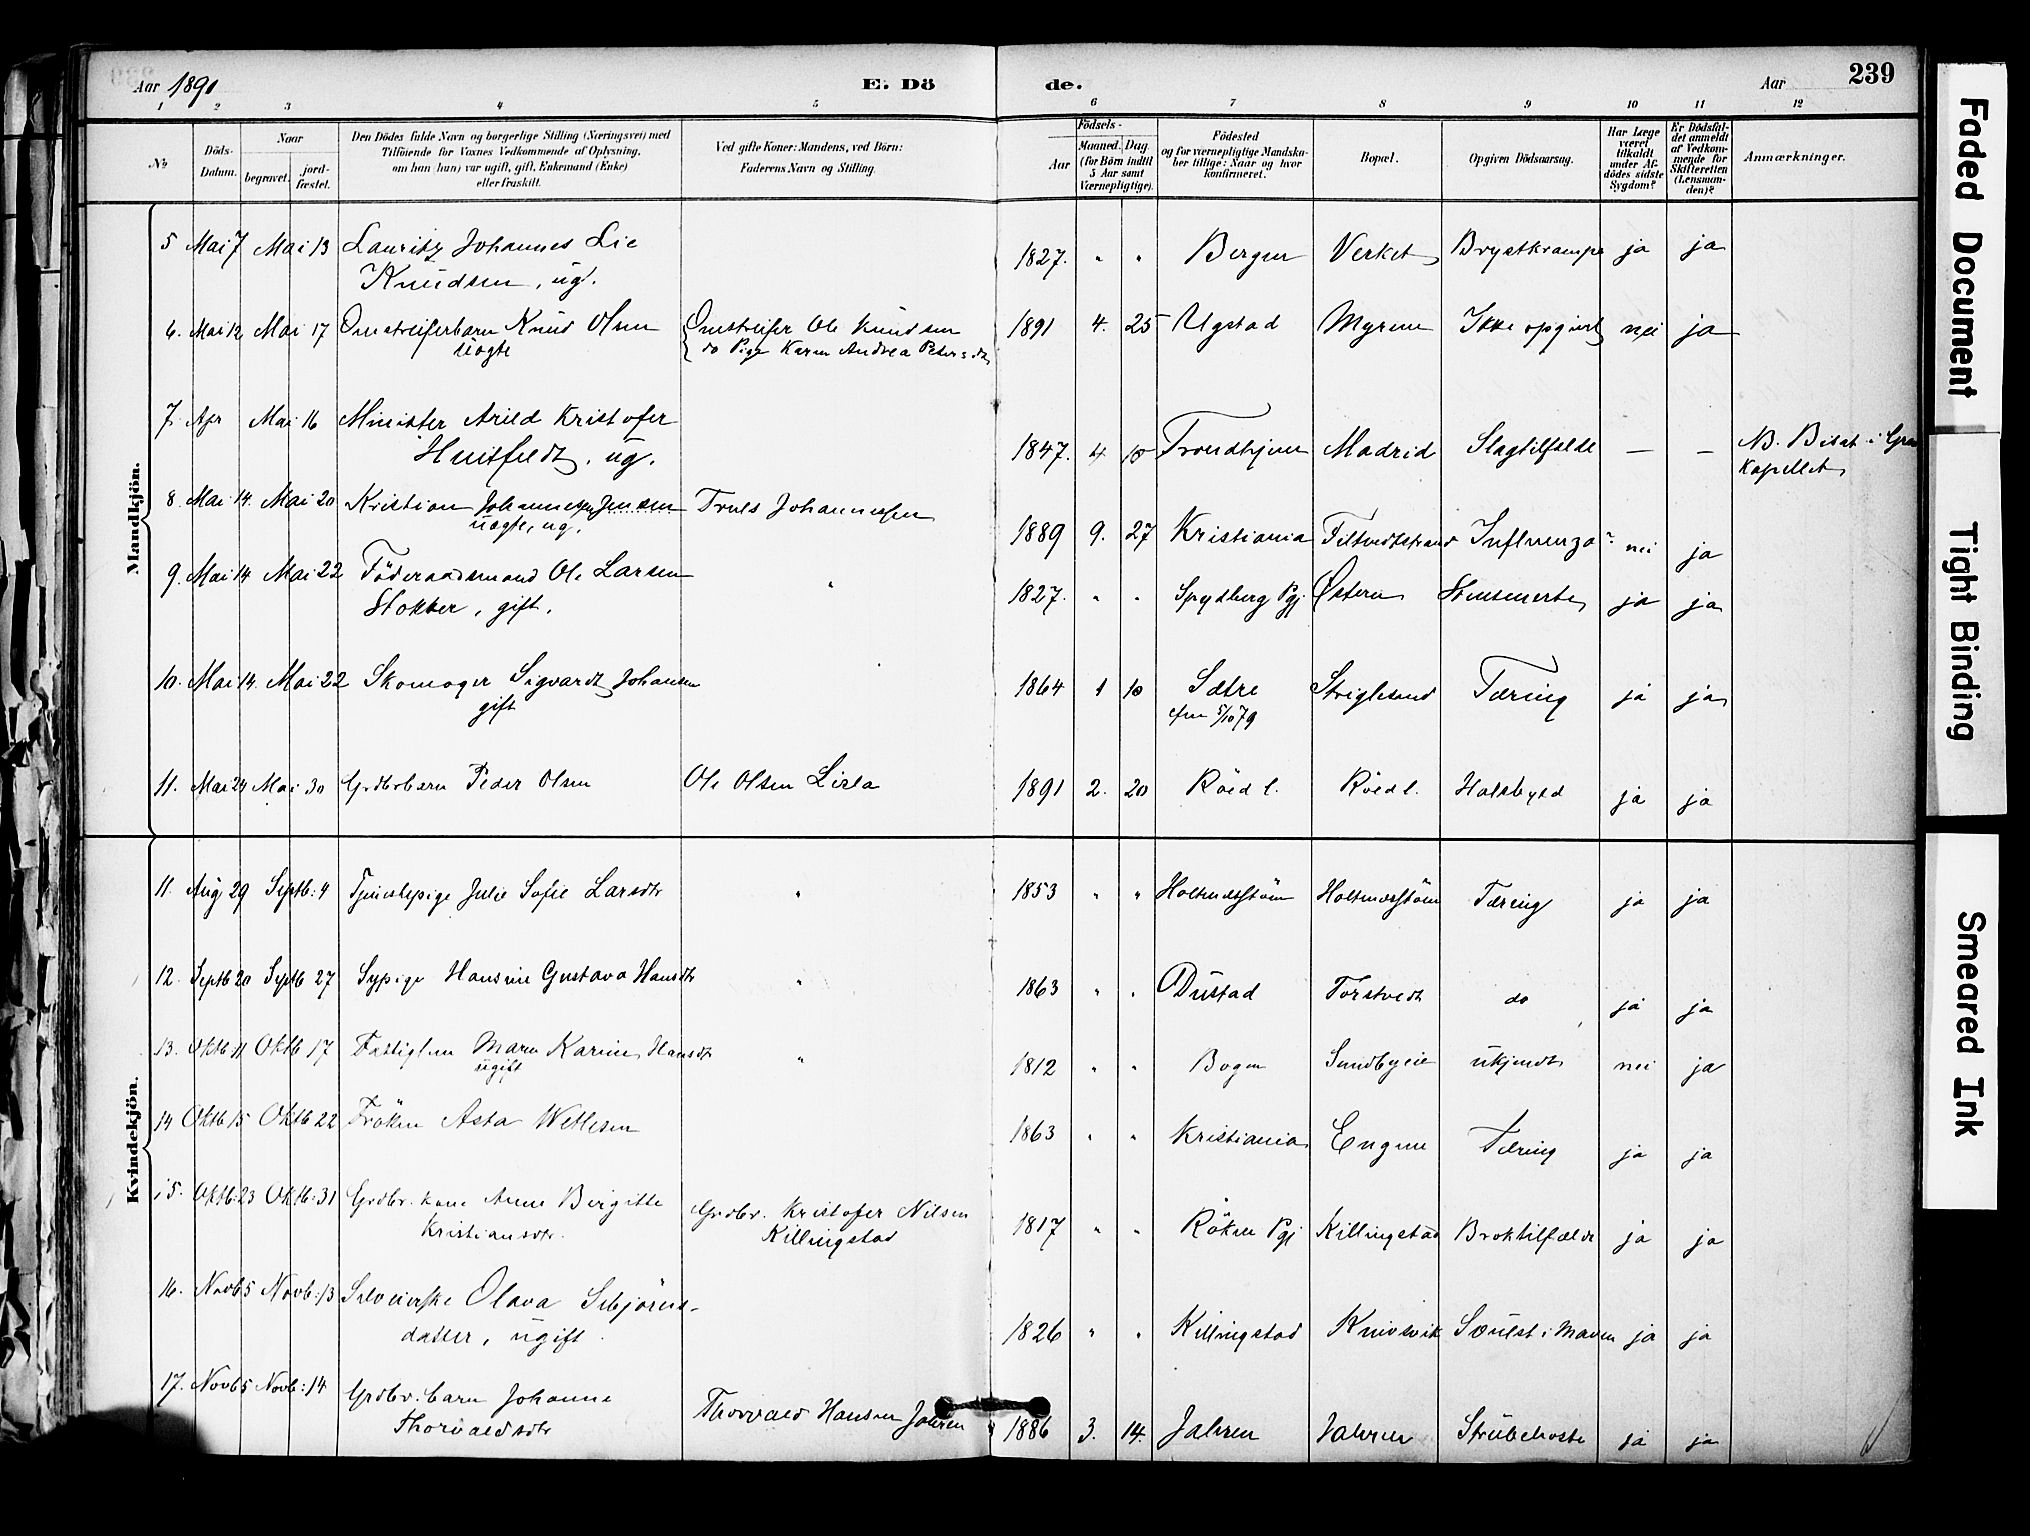 Aar 1890 E. Dö de. Aar 239
1 2 3 4 5 6 7 8 9 10 11 12
No
Döds-Datum.
Naar begravet. jord-fæstet.
Den Dödes fulde Navn og borgerlige Stilling (Næringsvei) med
Tilföiende for Voxnes Vedkommende af Oplysning,
om han (hun) var ugift, gift, Enkemand (Enke)
eller fraskilt.
Ved gifte Koner: Mandens, ved Börn:
Faderens Navn og Stilling.
Födsels-
Aar
Maaned. Dag.
(for Börn indtil
5 Aar samt
Værnepligtige).
Födested
og for værnepligtige Mandska-
ber tillige: Naar og hvor
konfirmeret.
Bopæl.
Opgiven Dödsaarsag.
Har Læge
været
tilkaldt
under Af-
dödes sidste
Sygdom?
Er Dödsfal-
det anmeldt
af Vedkom-
mende for
Skifteretten
(Lensman-
den)?
Anmærkninger.
Mandkjön.
5 Mai 7 Mai 13 Lauritz Johannes Lie 1827. " " Bergen Verket Brystkrampe ja ja
Knudsen, ug.
6. Mai 12 Mai 17 Omstreiferbarn Knud Olsen Omstreifer Ole Knudsen 1891 4. 25 Ugstad Myrene Ikke opgivet nei ja
uægte do Pige Karen Andrea Petersdt
7. Apr Mai 16 Minister Arild Kristofer
Huitfeldt, ug. 1847. 4 10 Trondhjem Madrid Slagtilfælde — — NB. Bisat i Grav
Kapellet
8. Mai 14. Mai 20 Kristian Johannesen Jensen Truls Johannesen 1889 9. 27 Kristiania Filtvedtstrand Influenza? nei ja
uægte, ug.
9. Mai 14 Mai 22 Föderaadsmand Ole Larsen " 1827. " " Spydberg Pgj Østern Stensmerter ja ja
Stokker, gift.
10. Mai 14. Mai 22 Skomager Sigvardt Johansen 1864 1 10 Sætre Striglesund Tæring ja ja
gift 5/10 79
11. Mai 24 Mai 30 Grdbrbarn Peder Olsen Ole Olsen 1891 2. 20 Röed l. Röed l. Halsbyld ja ja
Kvindekjön.
11. Aug 29 Septb: 4 Tjenestepige Julie Sofie Larsdtr " 1853 " " Holtnæs Tæring ja ja
12. Septb 20 Septb 27 Sypige Hansine Gustava Hansdtr " 1863 " " Dustad Torstvedt do ja ja
13. Oktb 11 Oktb 17 Fattiglem Maren Karine Hansdtr " 1812 " " Bogen Sundbyeie ukjendt nei ja
ugift
14 Oktb 15 Oktb 22 Fröken Asta Wetlesen 1863 " " Kristiania Engene Tæring ja ja
15. Oktb: 23 Oktb: 31 Grdbr. kone Anne Birgitte Grdbr. Kristofer Nilsen 1817 " " Röken Pgj Killingstad Broktilfælde ja ja
Kristiansdtr. Killingstad
16. Novb 5 Novb: 13 Selveierske Olava Sebjörns-
datter, ugift. 1826 " " Killingstad Knivsvik Svulst i Maven ja ja
17. Novb 5 Novb: 14 Grdbr. barn Johanne Thorvald Hansen Jahren 1886 3. 14. Jahren Jahren Strubehoste ja ja
Thorvaldsdtr
Faded Document
Tight Binding
Smeared Ink